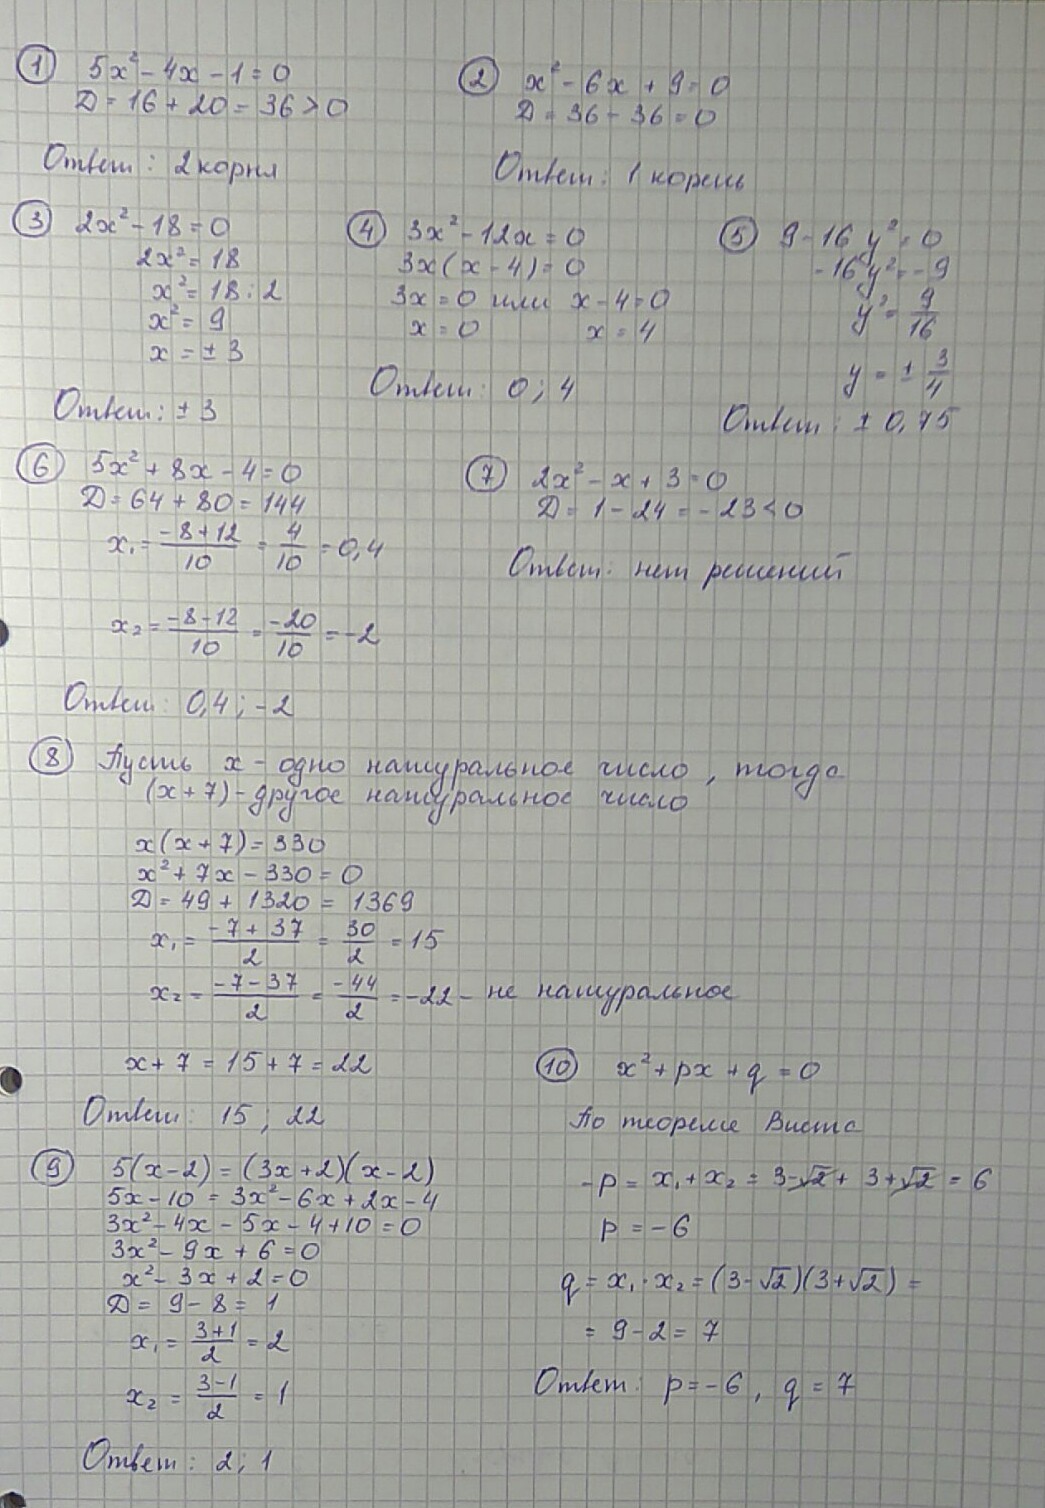 ① 5x² - 4x - 1 = 0
Д = 16 + 20 = 36 > 0
Ответ: 2 корня
② x² - 6x + 9 = 0
Д = 36 - 36 = 0
Ответ: 1 корень
③ 2x² - 18 = 0
2x² = 18
x² = 18 : 2
x² = 9
x = ± 3
Ответ: ± 3
④ 3x² - 12x = 0
3x(x - 4) = 0
3x = 0 или x - 4 = 0
x = 0 x = 4
Ответ: 0; 4
⑤ 9 - 16y² = 0
-16y² = -9
y² = 9/16
y = ± 3/4
Ответ: ± 0,75
⑥ 5x² + 8x - 4 = 0
Д = 64 + 80 = 144
x₁ = (-8+12)/10 = 4/10 = 0,4
x₂ = (-8-12)/10 = -20/10 = -2
Ответ: 0,4; -2
⑦ 2x² - x + 3 = 0
Д = 1 - 24 = -23 < 0
Ответ: нет решений
⑧ Пусть x - одно натуральное число, тогда
(x+7) - другое натуральное число
x(x+7) = 330
x² + 7x - 330 = 0
Д = 49 + 1320 = 1369
x₁ = (-7+37)/2 = 30/2 = 15
x₂ = (-7-37)/2 = -44/2 = -22 - не натуральное
x + 7 = 15 + 7 = 22
Ответ: 15; 22
⑨ 5(x-2) = (3x+2)(x-2)
5x - 10 = 3x² - 6x + 2x - 4
3x² - 4x - 5x - 4 + 10 = 0
3x² - 9x + 6 = 0
x² - 3x + 2 = 0
Д = 9 - 8 = 1
x₁ = (3+1)/2 = 2
x₂ = (3-1)/2 = 1
Ответ: 2; 1
⑩ x² + px + q = 0
По теореме Виета
-p = x₁ + x₂ = 3-√2 + 3+√2 = 6
p = -6
q = x₁ · x₂ = (3-√2)(3+√2) =
= 9 - 2 = 7
Ответ: p = -6, q = 7